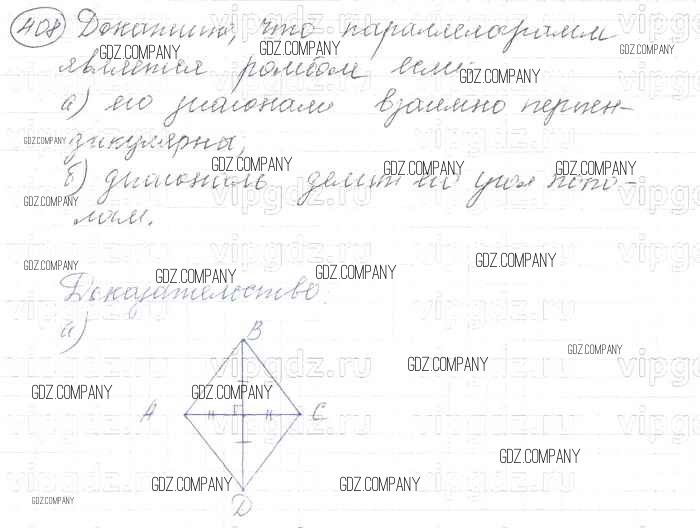 408 Докажите, что параллелограмм
является ромбом если:
а) его диагонали взаимно перпен-
дикулярны;
б) диагональ делит его угол попо-
лам.
Доказательство:
а)
B
A C
D
GDZ.COMPANY
vipgdz.ru